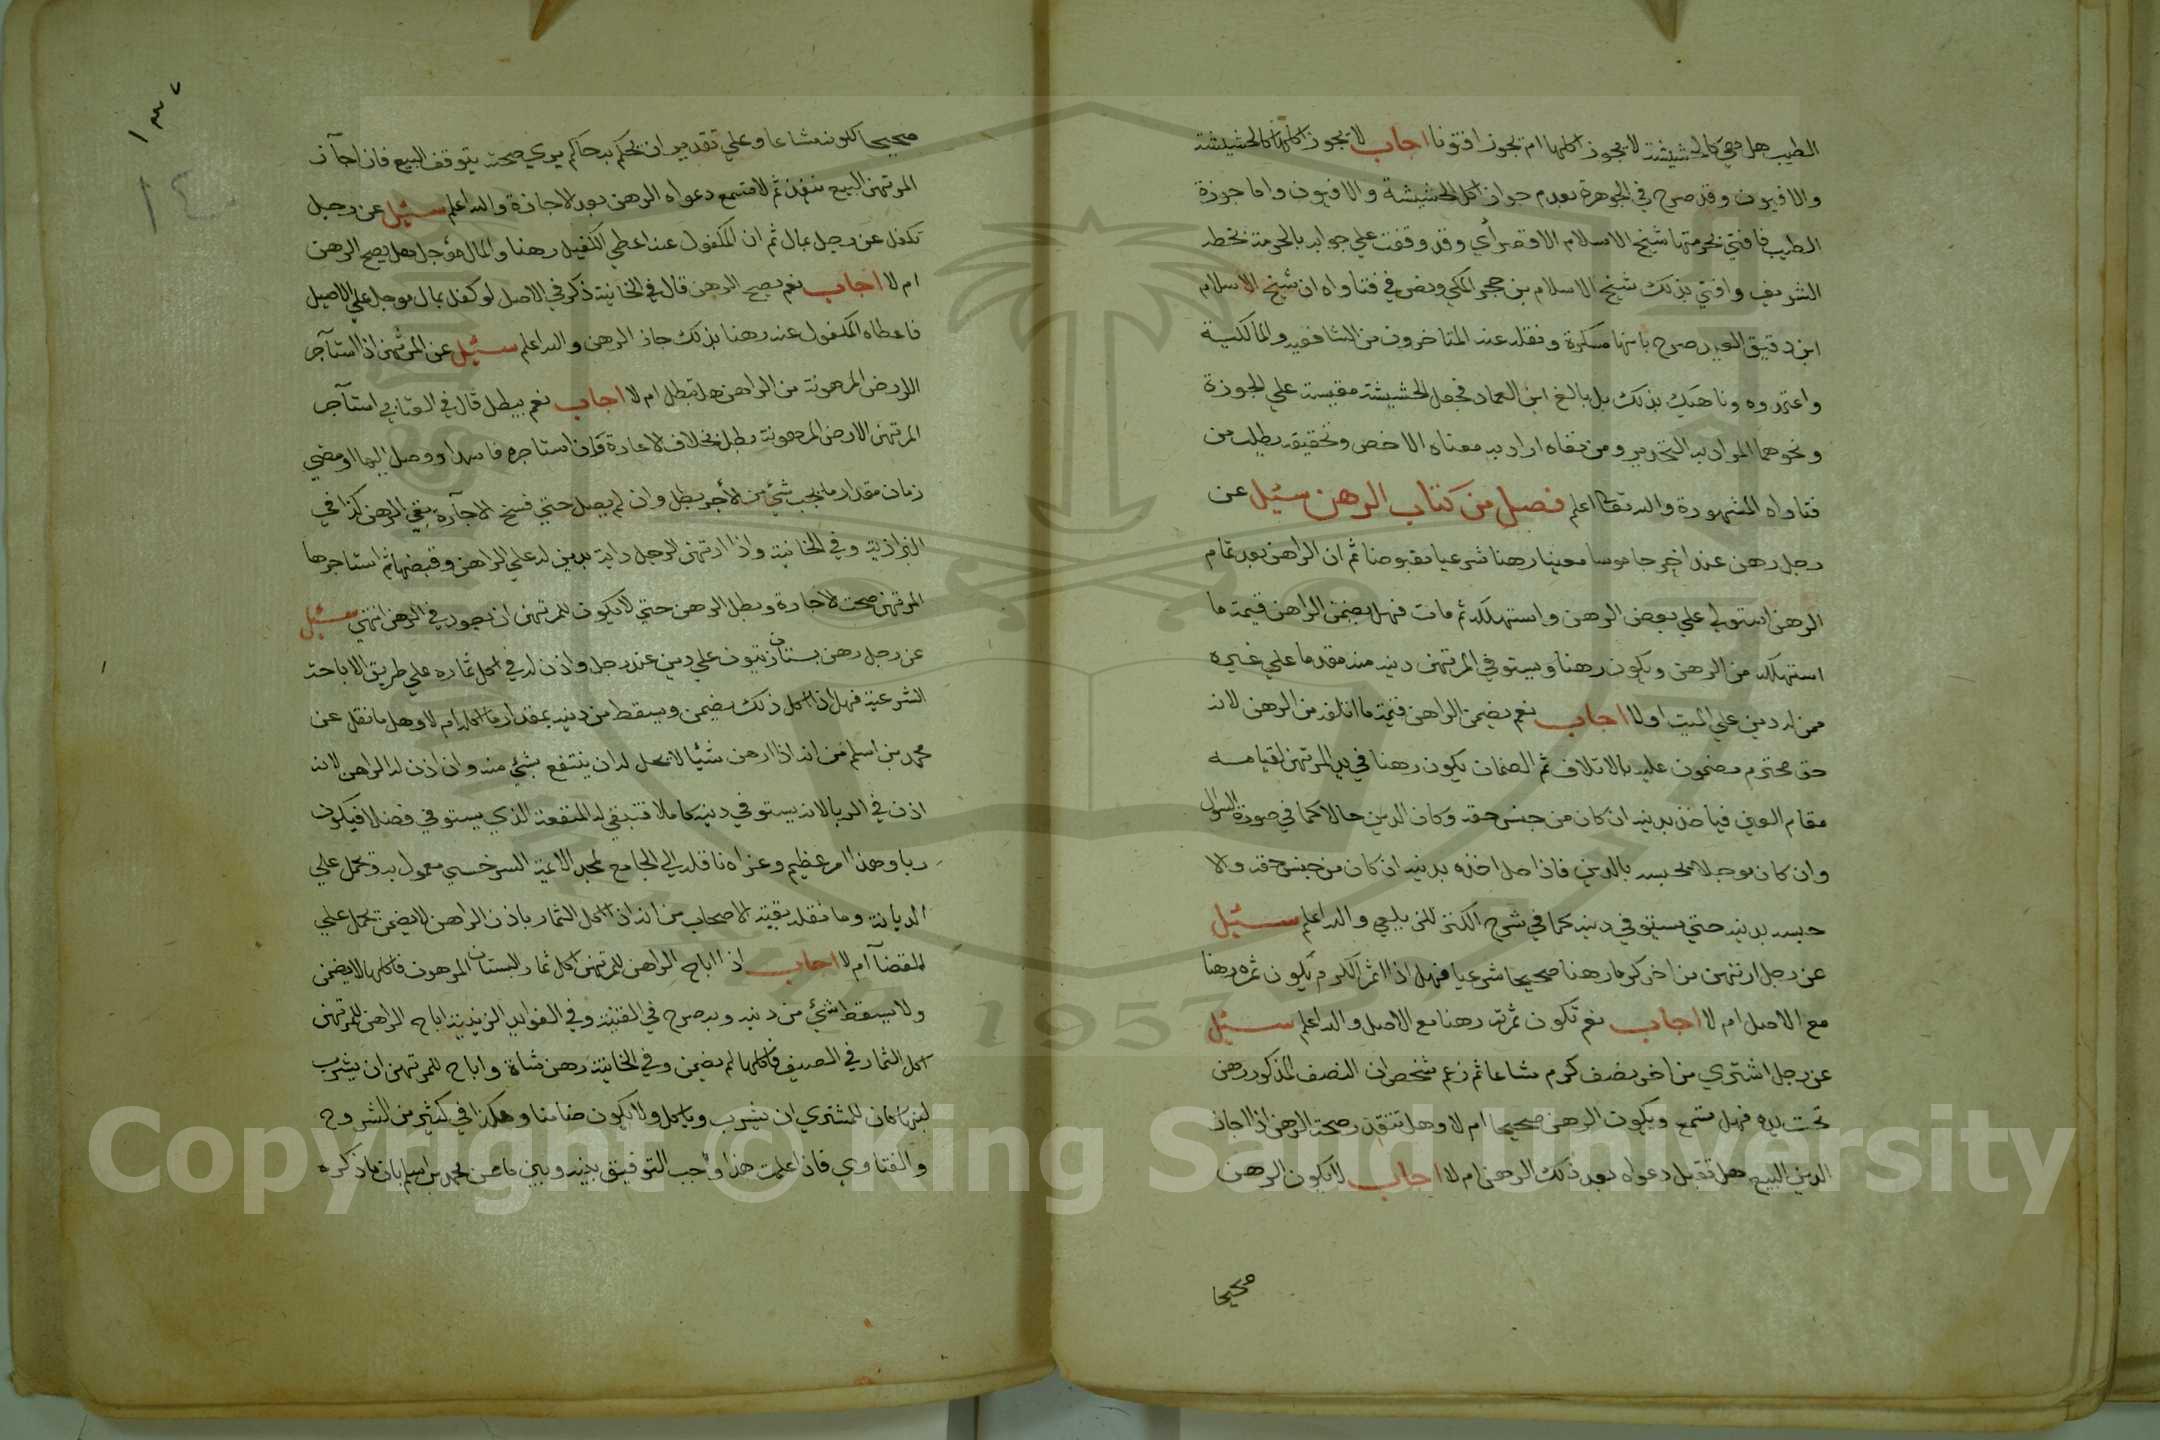 الطيب هل هي كالحشيشة لا يجوز اكلها ام يجوز افتونا اجاب لا يجوز اكلها كالحشيشة
والافيون وقد صرح في الجوهرة بعدم جواز اكل الحشيشة والافيون واما جوزة
الطيب فافتي بحرمتها شيخ الاسلام الاقصرأي وقد وقفت علي جوابه بالحرمة بخطه
الشريف وافتي بذلك شيخ الاسلام بن حجر المكي ونص في فتاواه ان شيخ الاسلام
ابن دقيق العيد صرح بانها مسكرة ونقله عنه المتاخرون من الشافعيه والمالكية
واعتمدوه وناهيك بذلك بل بالغ ابن العماد فجعل الحشيشة مقيسة علي الجوزة
ونحوهما المراد به التخدير ومن نفاه اراد به معناه الاخص وتحقيقه يطلب من
فتاواه المشهورة والله تعالي اعلم فصل من كتاب الرهن سئيل عن
رجل رهن عند اخر جاموسا معينا رهنا شرعيا مقبوضا ثم ان الراهن بعد تمام
الرهن استولي علي بعض الرهن واستهلكه ثم مات فهل يضمن الراهن قيمة ما
استهلكه من الرهن ويكون رهنا ويستوفي المرتهن دينه منه مقدما علي غيره
ممن له دين علي الميت اولا اجاب نعم يضمن الراهن قيمة ما اتلفه من الرهن لانه
حق محترم مضمون عليه بالاتلاف ثم الضمان يكون رهنا في يد المرتهن لقيامه
مقام العين فياخذ بدينه ان كان من جنس حقه وكان الدين حالا كما في صورة السوال
وان كان موجلا يحبسه بالدين فاذا حل اخذه بدينه ان كان من جنس حقه والا
حبسه بدينه حتي يستوفي دينه كما في شرح الكنز للزيلعي والله اعلم سئيل
عن رجل ارتهن من اخر كرما رهنا صحيحا شرعيا فهل اذا اثمر الكرم يكون ثمره رهنا
مع الاصل ام لا اجاب نعم تكون ثمرته رهنا مع الاصل والله اعلم سئيل
عن رجل اشتري من اخر نصف كرم مشاعا ثم زعم شخص ان النصف المذكور رهن
تحت يده فهل تسمع ويكون الرهن صحيحا ام لا وهل تنتقد صحة الرهن اذا اجاز
الدين البيع هل تقبل دعواه بعد ذلك الرهن ام لا اجاب لا يكون الرهن
صحيحا
١٣٧
١٤
صحيحا لكونه مشاعا وعلي تقدير ان يحكم به حاكم يري صحته يتوقف البيع فان اجاز
المرتهن البيع ينفذ ثم لا تسمع دعواه الرهن بعد الاجازة والله اعلم سئيل عن رجل
تكفل عن رجل بمال ثم ان المكفول عنه اعطي الكفيل رهنا والمال مؤجل هل يصح الرهن
ام لا اجاب نعم يصح الرهن قال في الخانية ذكر في الاصل لو كفل بمال موجل علي الاصيل
فاعطاه المكفول عنه رهنا بذلك جاز الرهن والله اعلم سئيل عن المرتهن اذا استآجر
الارض المرهونة من الراهن هل يبطل ام لا اجاب نعم يبطل قال في العتابي استآجر
المرتهن الارض المرهونة بطل بخلاف الاعارة فان استاجره فاسدا ووصل اليها ومضي
زمان مقدار ما يجب شئ من الأجر بطل وان لم يصل حتي فسخ الاجآرة بقي الرهن كذا في
البزازية وفي الخانية واذا ارتهن الرجل دابة بدين له علي الراهن وقبضها ثم استاجرها
المرتهن صحت الاجارة وبطل الرهن حتي لا يكون للمرتهن ان يعود في الرهن انتهي سئيل
عن رجل رهن بستان زيتون علي دين عند رجل واذن له في اكل ثماره علي طريق الاباحة
الشرعية فهل اذا اكل ذلك يضمن ويسقط من دينه بمقدار ما اكله ام لا وهل ما نقل عن
محمد بن اسلم من انه اذا ارهن شيا لا يحل له ان ينتفع بشئ منه وان اذن له الراهن لانه
اذن في الربا لانه يستوفي دينه كاملا فتبقي له المنفعة الذي يستوفي فضلا فيكون
ربا وهذا امر عظيم وعزاه ناقله الي الجامع لمجد الايمة السرخسي معمول به وتحمل علي
الديانة وما نقله بقية الاصحاب من انه اذا اكل الثمار باذن الراهن لا يضمن يحمل علي
القضآ ام لا اجاب اذا اباح الراهن للمرتهن اكل ثمار البستان المرهون فاكلها لا يضمن
ولا يسقط شئ من دينه وبه صرح في القنية وفي الفوايد الزينية اباح الراهن للمرتهن
اكل الثمار في الصيف فاكلها لم يضمن وفي الخانية رهن شاة واباح للمرتهن ان يشرب
لبنها كان للمشتري ان يشرب وياكل ولا يكون ضامنا وهكذا في كثير من الشروح
والفتاوي فاذا علمت هذا وجب التوفيق بينه وبين ما عن محمد بن اسلم بان ما ذكره
1957
Copyright © King Saud University